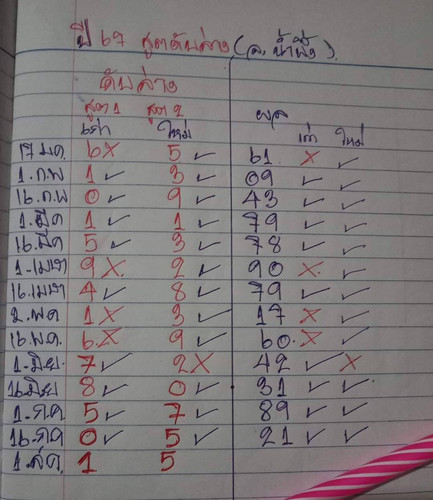 ปี 67 สูตรดับล่าง (อ.น้ำผึ้ง).
ดับล่าง
สูต 1 สูต 2 ผล
เก่า ใหม่ เก่า ใหม่
17 มค. 6 X 5 ✓ 61. X ✓
1. ก.พ 1 ✓ 3 ✓ 09 ✓ ✓
16. ก.พ 0 ✓ 9 ✓ 43 ✓ ✓
1. มีค 1 ✓ 1 ✓ 79 ✓ ✓
16. มีค 5 ✓ 3 ✓ 78 ✓ ✓
1. เมษา 9 X 2 ✓ 90 X ✓
16. เมษา 4 ✓ 8 ✓ 79 ✓ ✓
2. พค 1 X 3 ✓ 17 X ✓
16 พค. 6. X 9 ✓ 60. X ✓
1. มิย. 7 ✓ 2 X 42 ✓ X
16 มิย 8 ✓ 0 ✓ 31 ✓ ✓
1. กค 5 ✓ 7 ✓ 89 ✓ ✓
16. กค 0 ✓ 5 ✓ 21 ✓ ✓
1. สค. 1 5